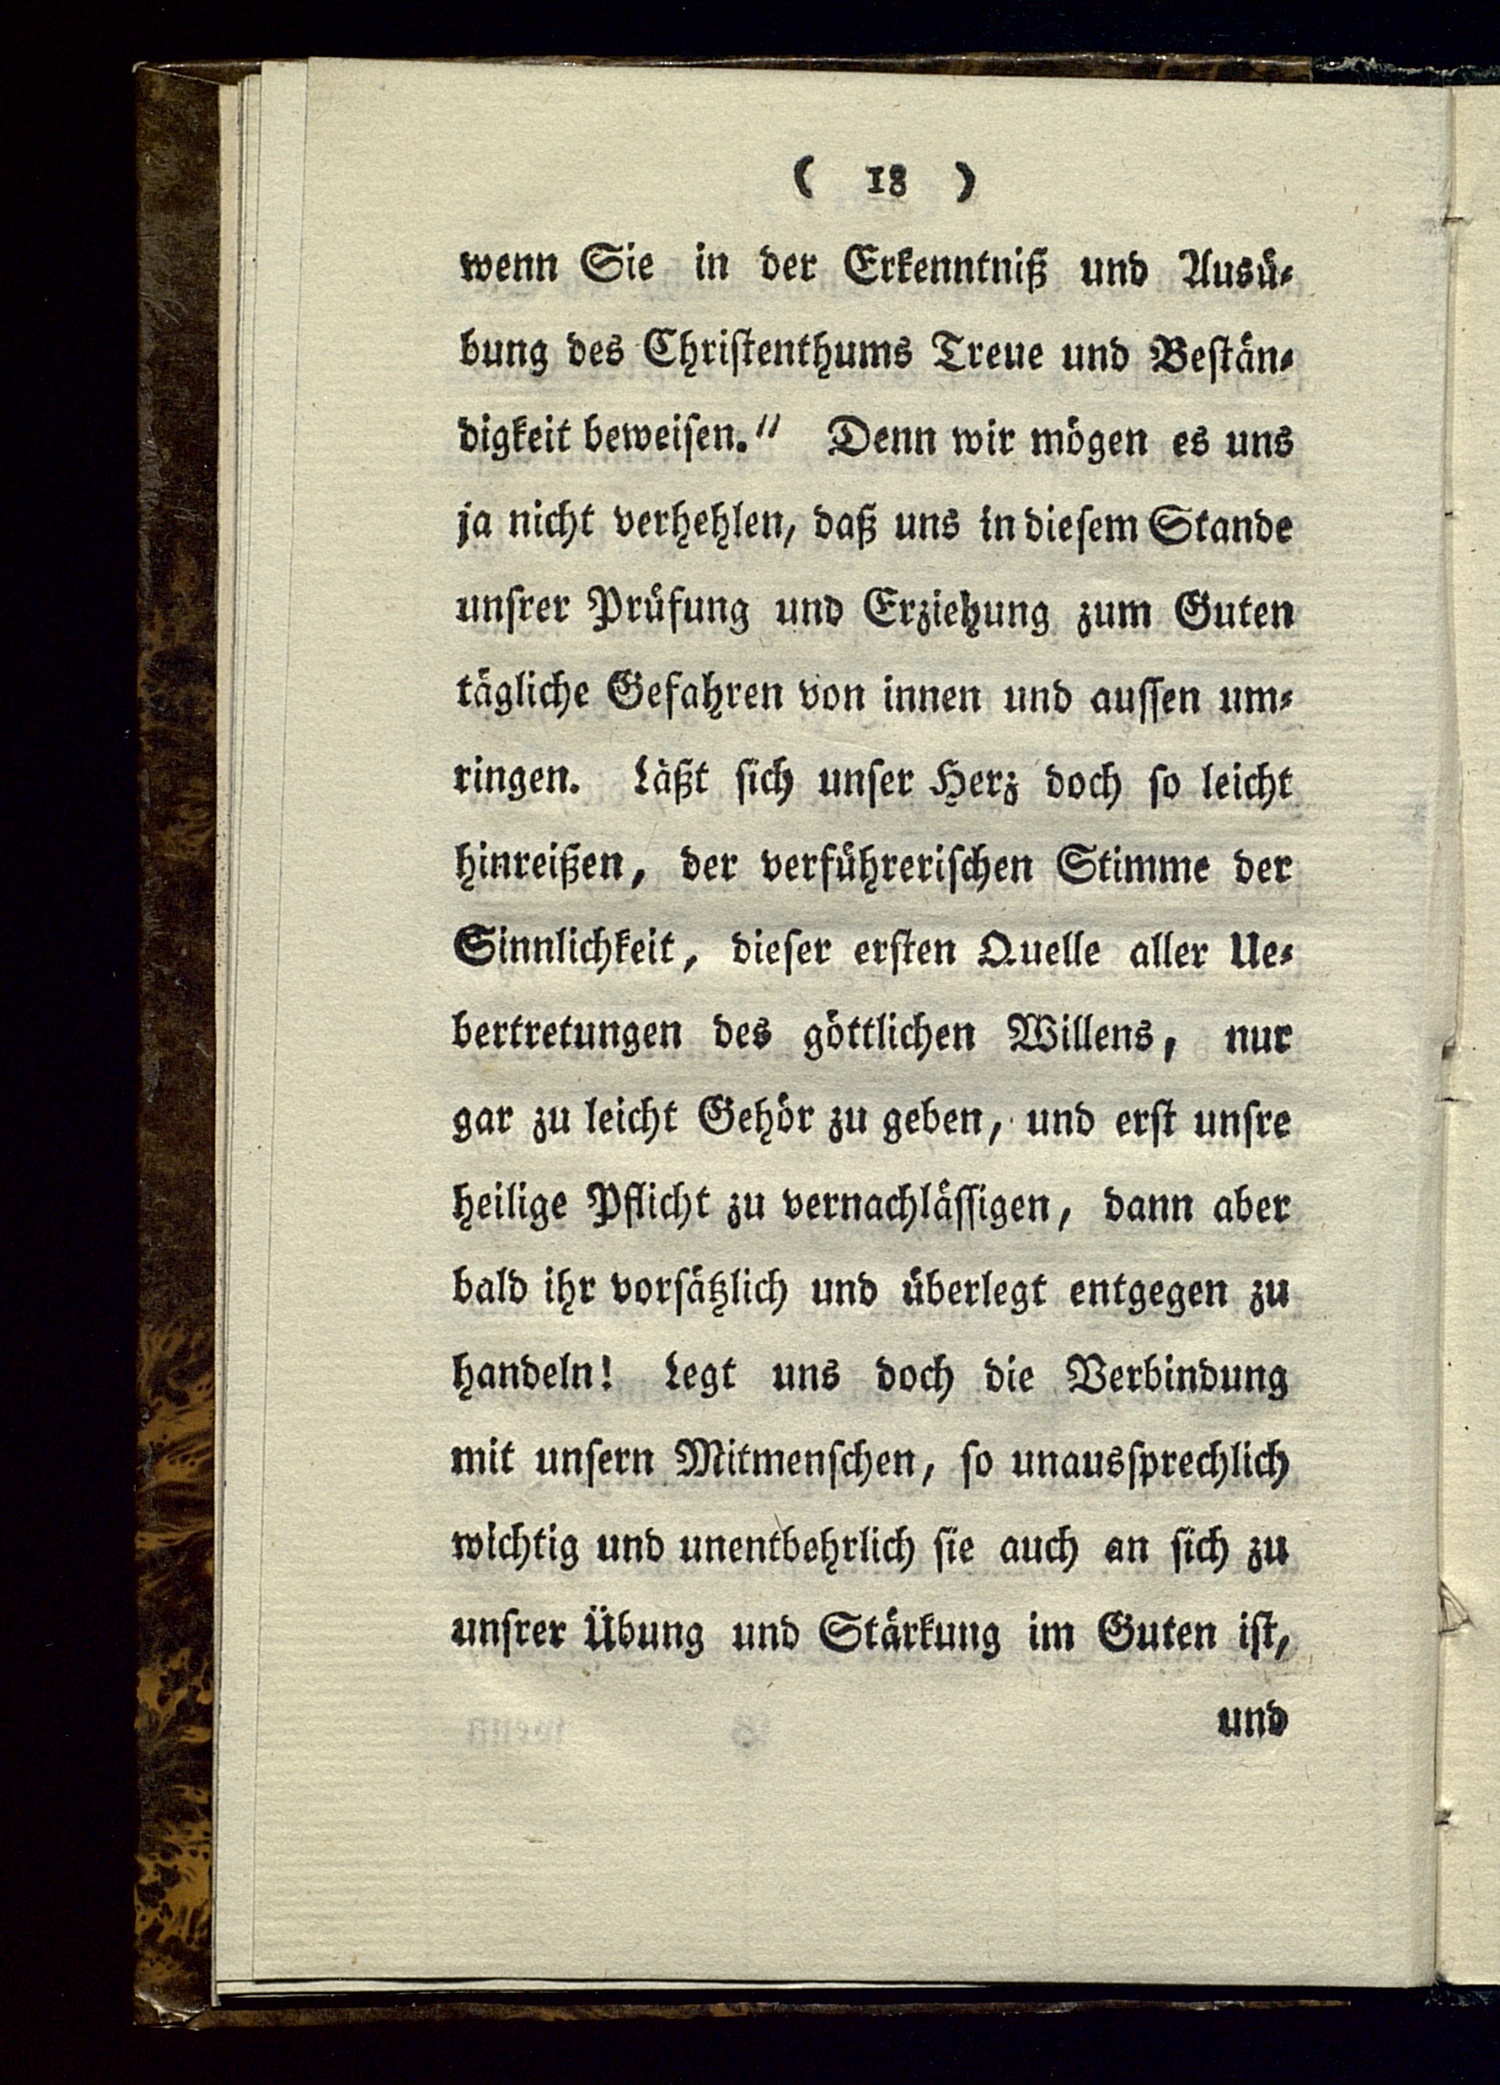 ( 18 )
wenn Sie in der Erkenntniß und Ausü-
bung des Christenthums Treue und Bestän-
digkeit beweisen.“ Denn wir mögen es uns
ja nicht verhehlen, daß uns in diesem Stande
unsrer Prüfung und Erziehung zum Guten
tägliche Gefahren von innen und aussen um-
ringen. Läßt sich unser Herz doch so leicht
hinreißen, der verführerischen Stimme der
Sinnlichkeit, dieser ersten Quelle aller Ue-
bertretungen des göttlichen Willens, nur
gar zu leicht Gehör zu geben, und erst unsre
heilige Pflicht zu vernachlässigen, dann aber
bald ihr vorsätzlich und überlegt entgegen zu
handeln! Legt uns doch die Verbindung
mit unsern Mitmenschen, so unaussprechlich
wichtig und unentbehrlich sie auch an sich zu
unsrer Übung und Stärkung im Guten ist,
und